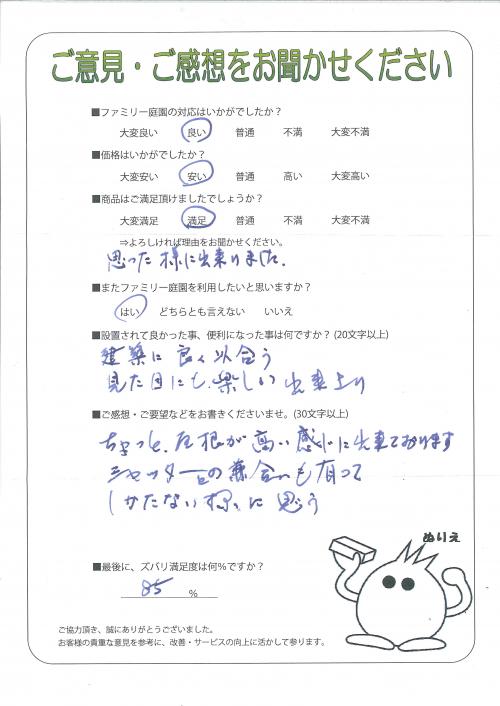 ご意見・ご感想をお聞かせください
■ファミリー庭園の対応はいかがでしたか？
大変良い 良い 普通 不満 大変不満
■価格はいかがでしたか？
大変安い 安い 普通 高い 大変高い
■商品はご満足頂けましたでしょうか？
大変満足 満足 普通 不満 大変不満
⇒よろしければ理由をお聞かせください。
思った様に出来りました.
■またファミリー庭園を利用したいと思いますか？
はい どちらとも言えない いいえ
■設置されて良かった事、便利になった事は何ですか？(20文字以上)
建築に良く似合う
見た目にも.楽しい出来上り
■ご感想・ご要望などをお書きくださいませ。(30文字以上)
ちょっと.屋根が高い感じに出来ております
シャッターとの兼合いも有って
しかたない様に思う
ぬりえ
■最後に、ズバリ満足度は何%ですか？
85 %
ご協力頂き、誠にありがとうございました。
お客様の貴重な意見を参考に、改善・サービスの向上に活かして参ります。